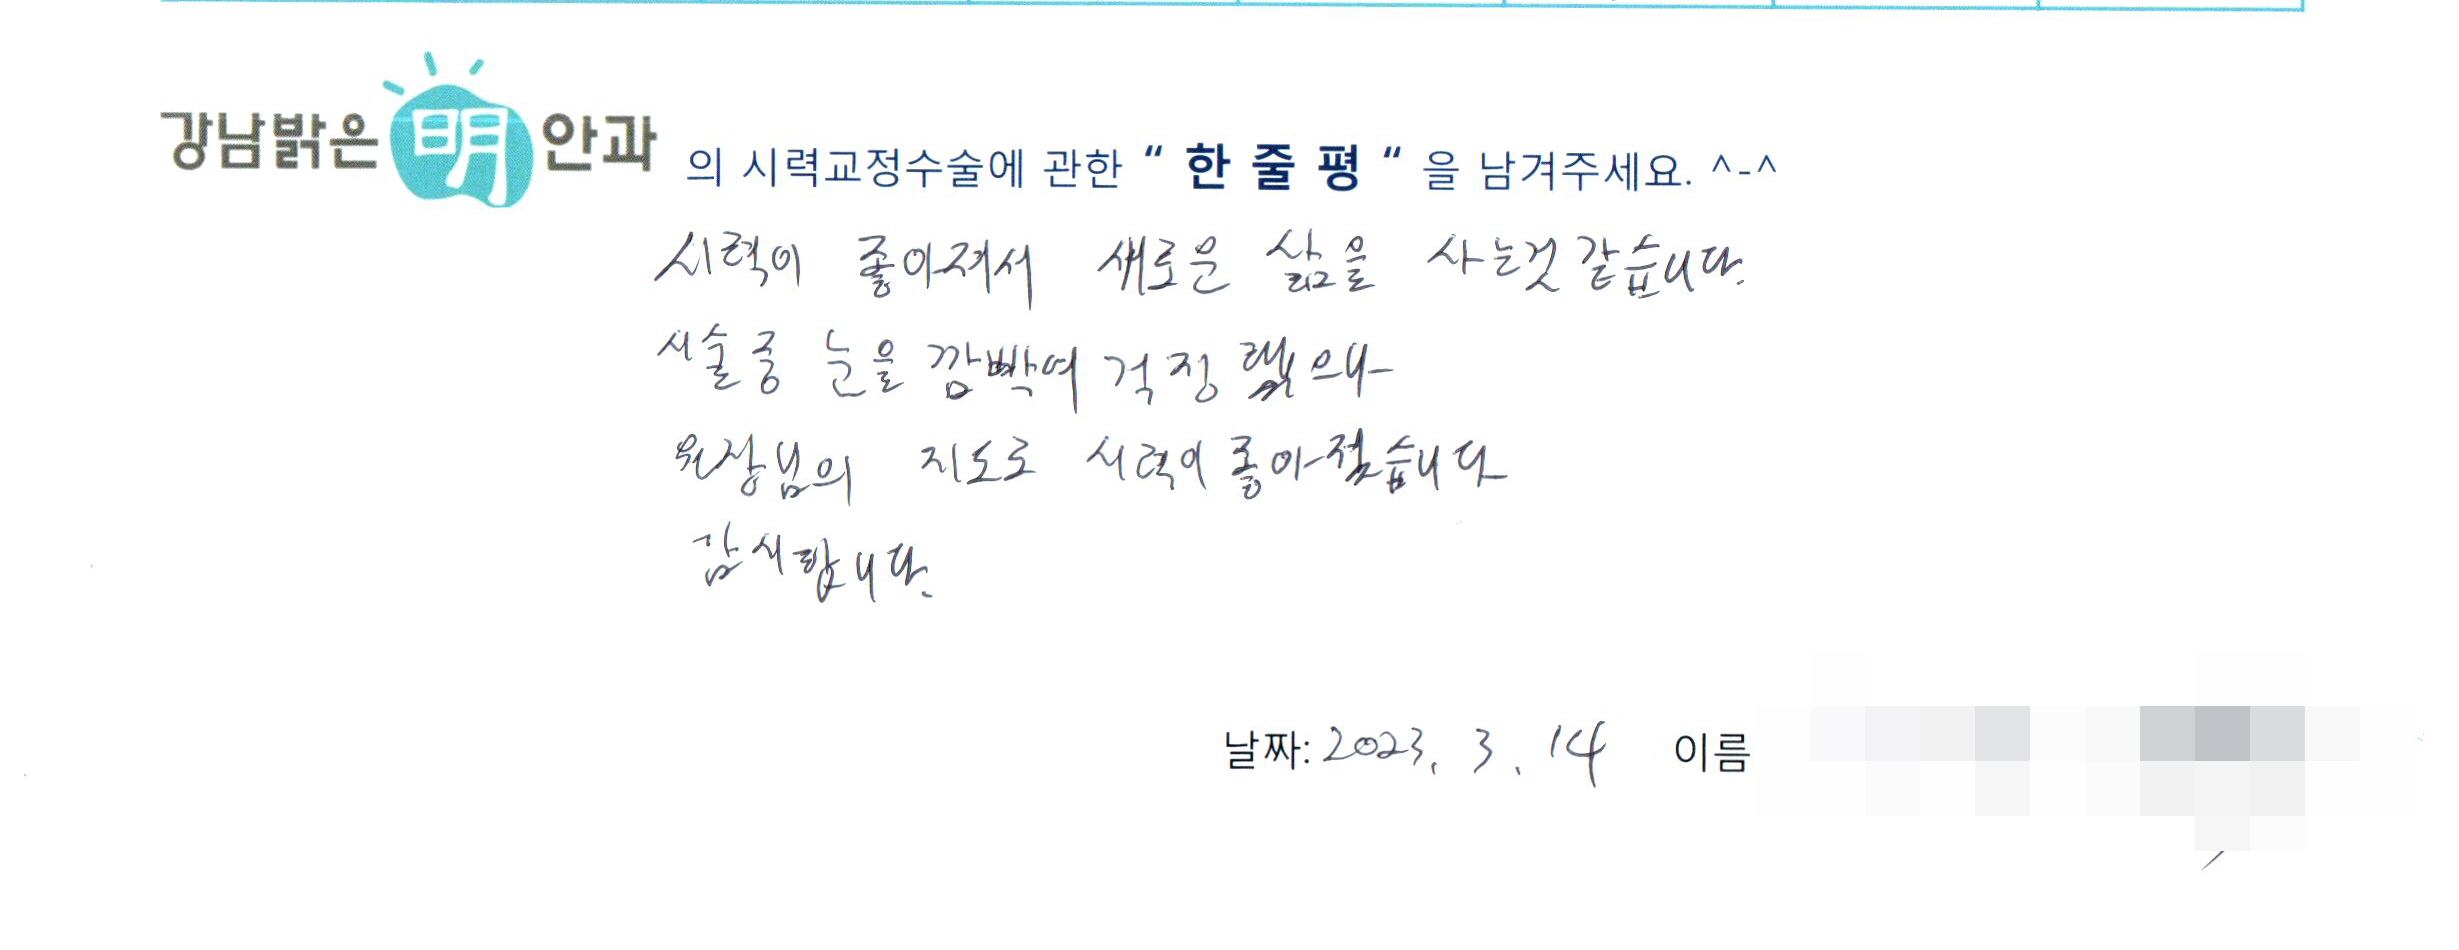 강남밝은明안과 의 시력교정수술에 관한 “ 한 줄 평 “ 을 남겨주세요. ^-^
시력이 좋아져서 새로운 삶을 사는것 같습니다.
시술중 눈을 깜빡여 걱정 했으나
원장님의 지도로 시력이 좋아졌습니다
감사합니다.
날짜: 2023. 3. 14 이름